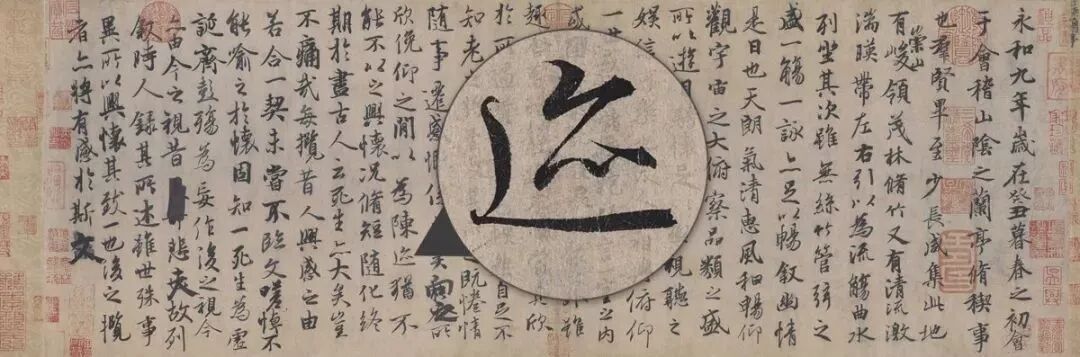 永和九年歲在癸丑暮春之初會
于會稽山陰之蘭亭脩稧事
也羣賢畢至少長咸集此地
有崇山峻領茂林脩竹又有清流激
湍暎帶左右引以為流觴曲水
列坐其次雖無絲竹管弦之
盛一觴一詠亦足以暢叙幽情
是日也天朗氣清惠風和暢仰
觀宇宙之大俯察品類之盛
所以遊目視聽之
娛信俯仰
一世之內
或雖
趣其欣
於所自足不
知老既惓情
隨事遷感慨係矣向之所
欣俛仰之閒以為陳迹猶不
能不以之興懷況脩短隨化終
期於盡古人云死生亦大矣豈
不痛哉每攬昔人興感之由
若合一契未嘗不臨文嗟悼不
能喻之於懷固知一死生為虛
誕齊彭殤為妄作後之視今
亦由今之視昔悲夫故列
叙時人錄其所述雖世殊事
異所以興懷其致一也後之攬
者亦將有感於斯文
迹